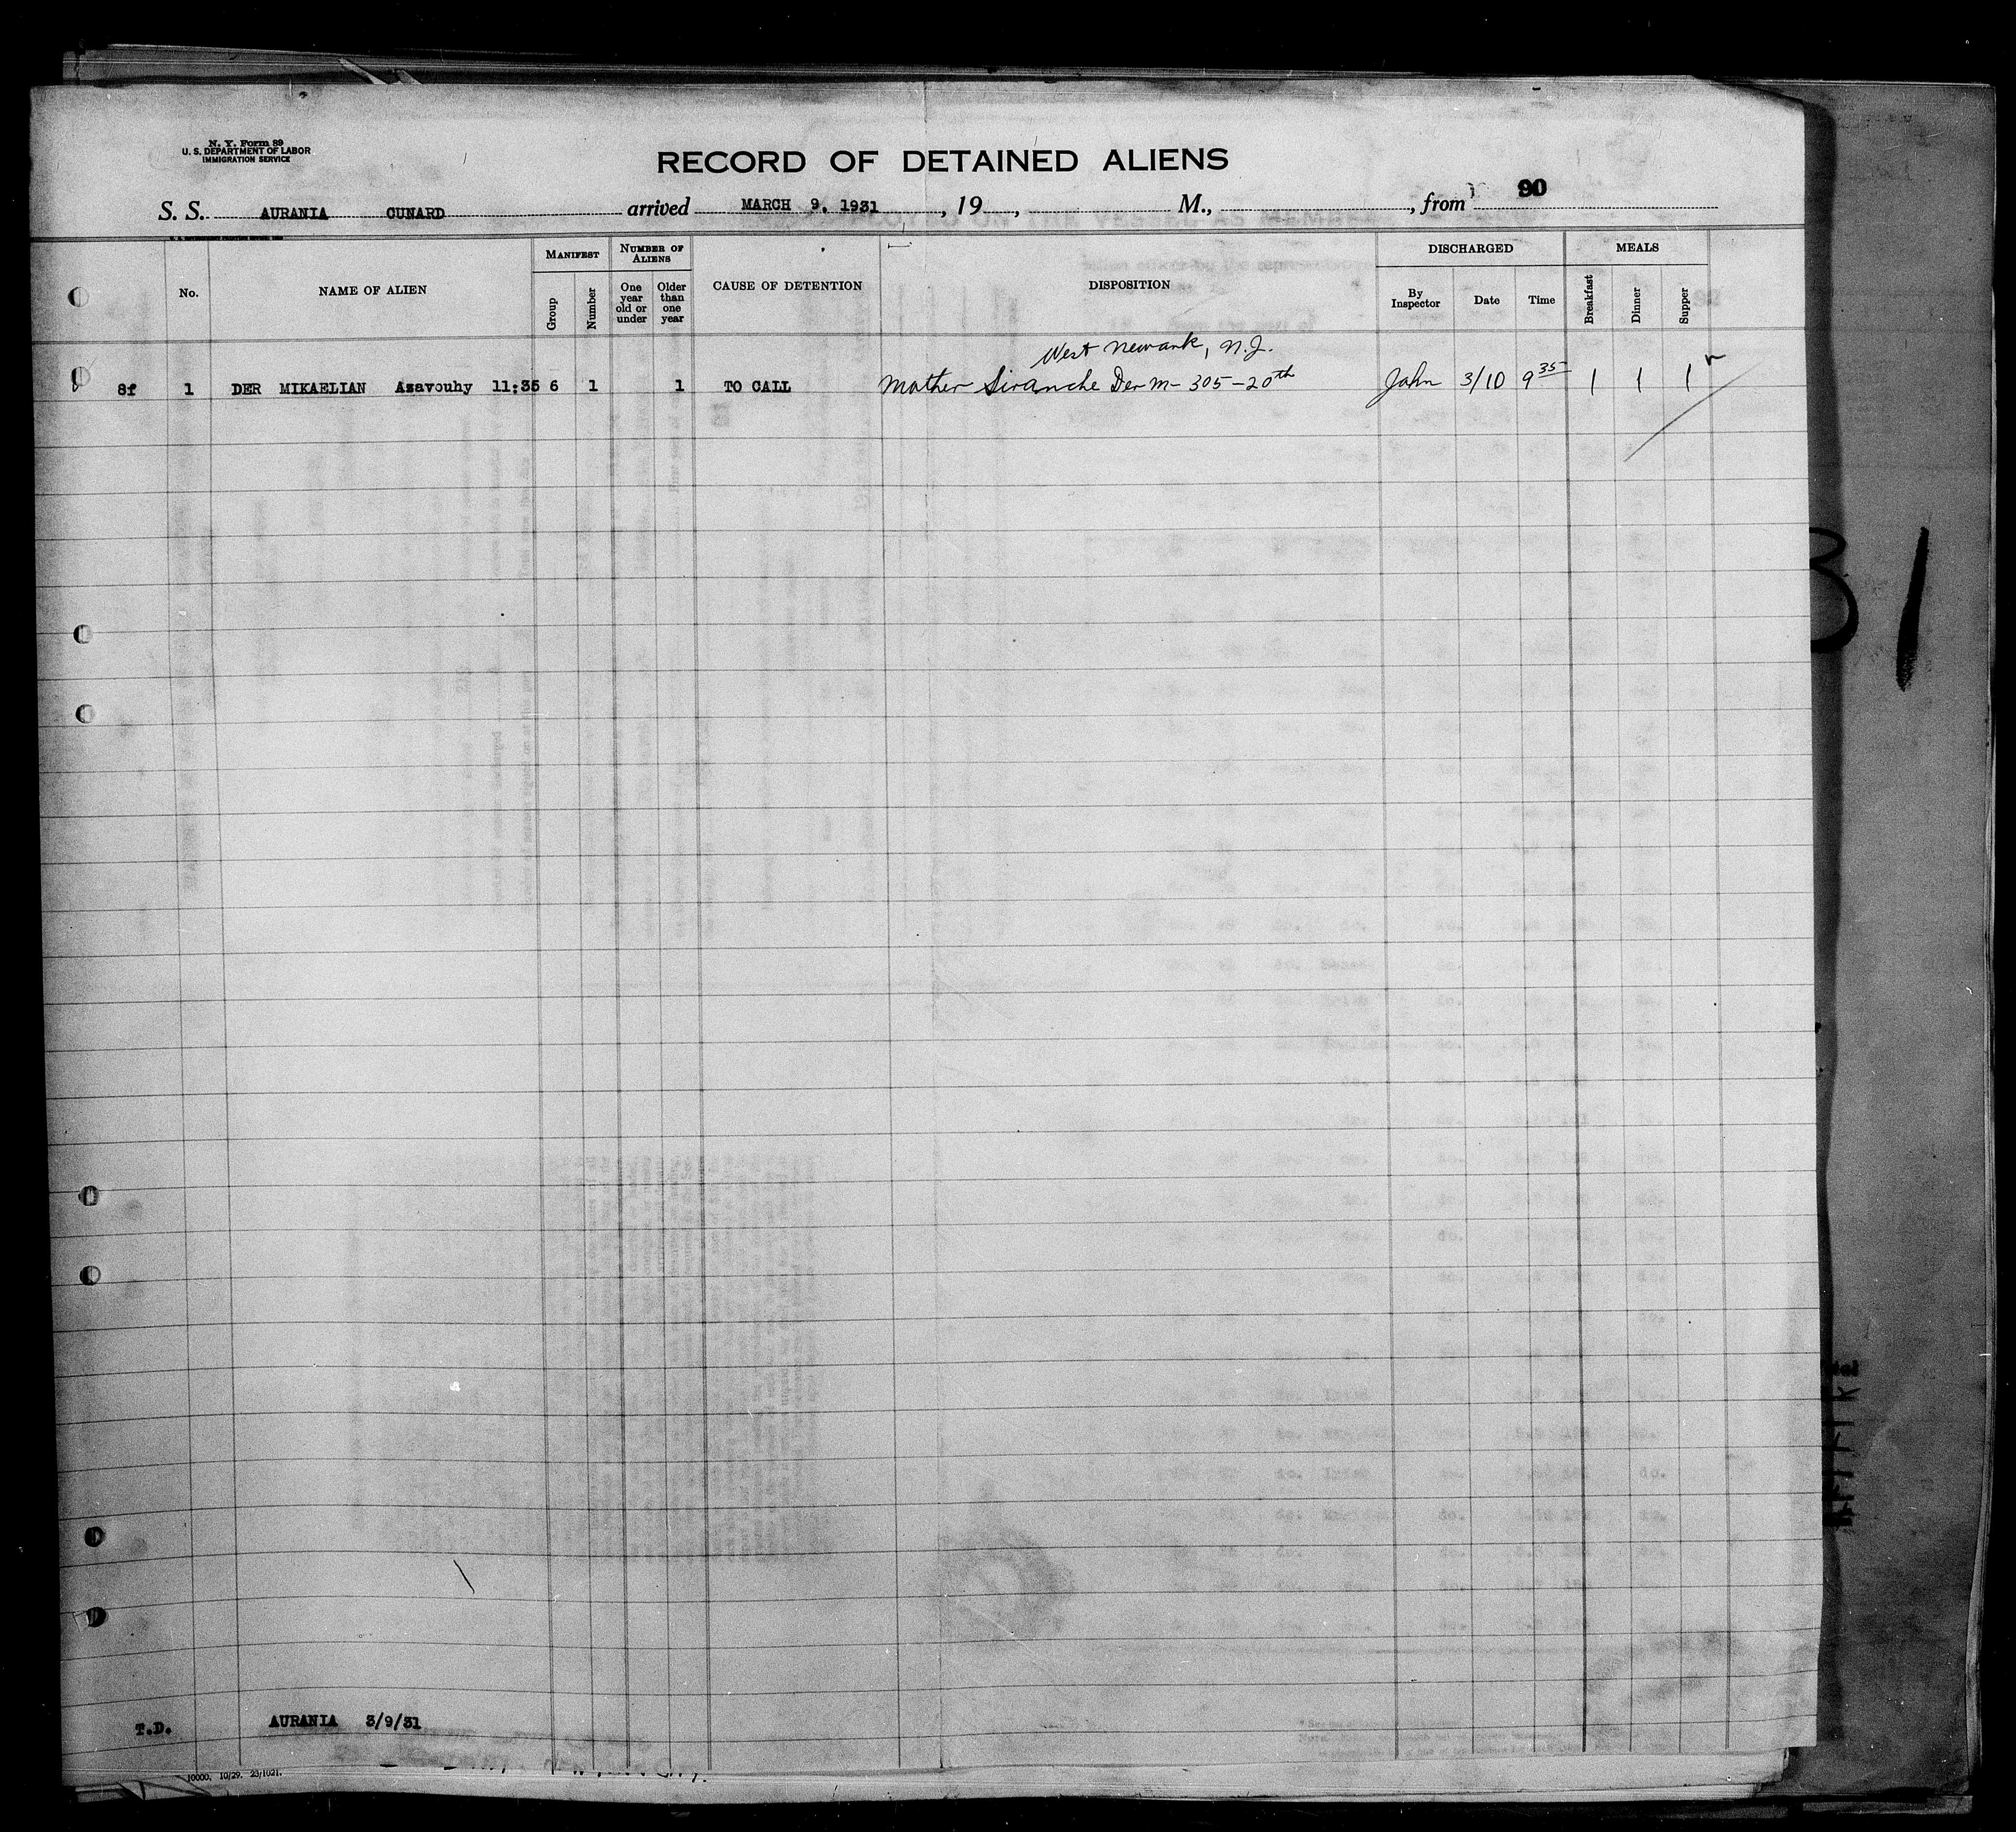 N. Y. Form 89
U. S. DEPARTMENT OF LABOR
IMMIGRATION SERVICE
RECORD OF DETAINED ALIENS
90
S. S. AURANIA CUNARD arrived MARCH 9, 1931, 19 , M., , from
No. NAME OF ALIEN MANIFEST Group Number NUMBER OF ALIENS One year old or under Older than one year CAUSE OF DETENTION DISPOSITION DISCHARGED By Inspector Date Time MEALS Breakfast Dinner Supper
West Newark, N.J.
8f 1 DER MIKAELIAN Azavouhy 11:35 6 1 1 TO CALL Mother Siranche Der M- 305-20th John 3/10 9 35 1 1 1
31
T.D. AURANIA 3/9/31
10000, 10/29. 23/1021.